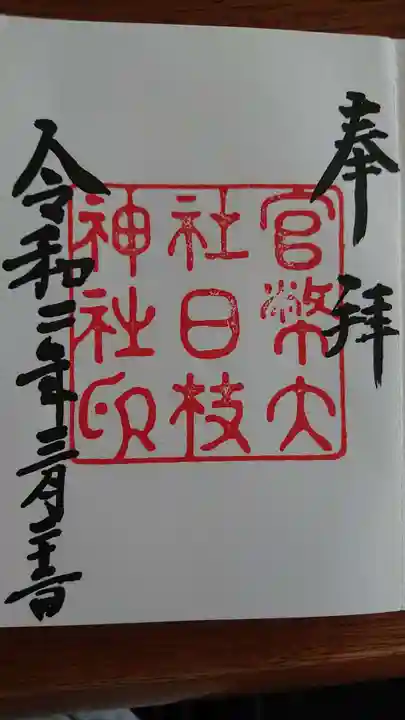 奉拝
官幣大
社日枝
神社印
令和三年三月二十一日